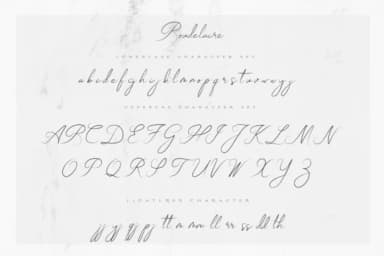 Roudelaire
LOWERCASE CHARACTER SET
abcdefghijklmnopqrstuvwxyz
UPPERCASE CHARACTER SET
ABCDEFGHIJKLMN
OPQRSTUVWXYZ
LIGATURES CHARACTER
tt nn mm ll rr ss dd th